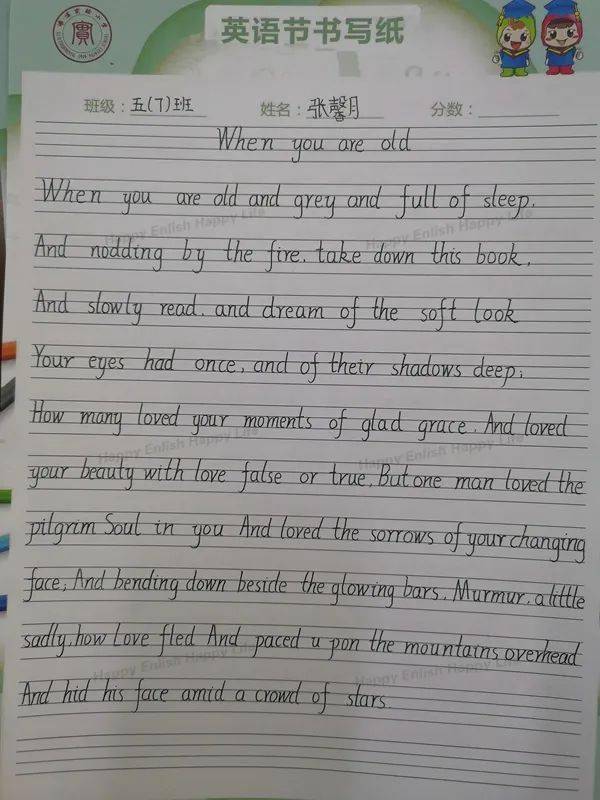 英语节书写纸
班级：五(7)班 姓名：张馨月 分数：
When you are old
When you are old and grey and full of sleep.
And nodding by the fire. take down this book,
And slowly read. and dream of the soft look
Happy Enlish Happy Life Happy Enlish Happy Life
Your eyes had once, and of their shadows deep;
How many loved your moments of glad grace. And loved
Happy Enlish Happy Life Happy Enlish Happy Life
your beauty with love false or true, But one man loved the
pilgrim Soul in you And loved the sorrows of your changing
face; And bending down beside the glowing bars. Murmur. a little
sadly. how Love fled And paced u pon the mountains overhead
Happy Enlish Happy Life Happy Enlish Happy Life
And hid his face amid a crowd of stars.